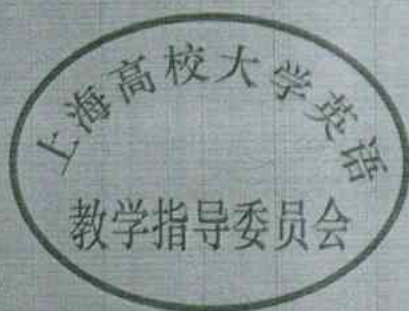 上海高校大学英语
教学指导委员会